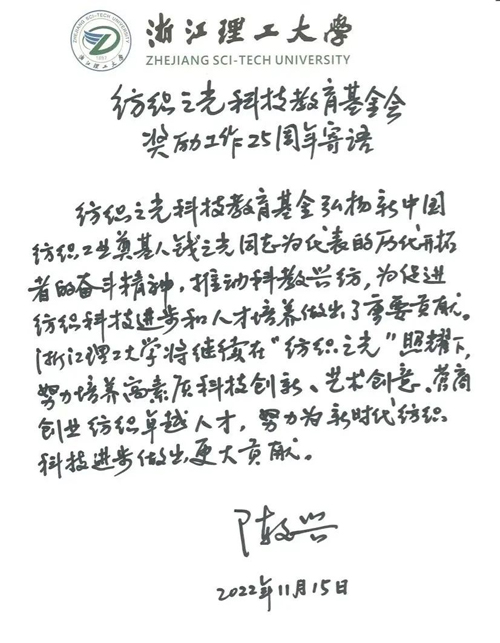 浙江理工大学
ZHEJIANG SCI-TECH UNIVERSITY
纺织之光科技教育基金会
奖励工作25周年寄语
纺织之光科技教育基金弘扬新中国
纺织工业奠基人钱之光同志为代表的历代开拓
者的奋斗精神，推动科教兴纺，为促进
纺织科技进步和人才培养做出了重要贡献。
浙江理工大学将继续在“纺织之光”照耀下，
努力培养高素质科技创新、艺术创意、营商
创业纺织卓越人才，努力为新时代纺织
科技进步做出更大贡献。
陈文兴
2022年11月15日